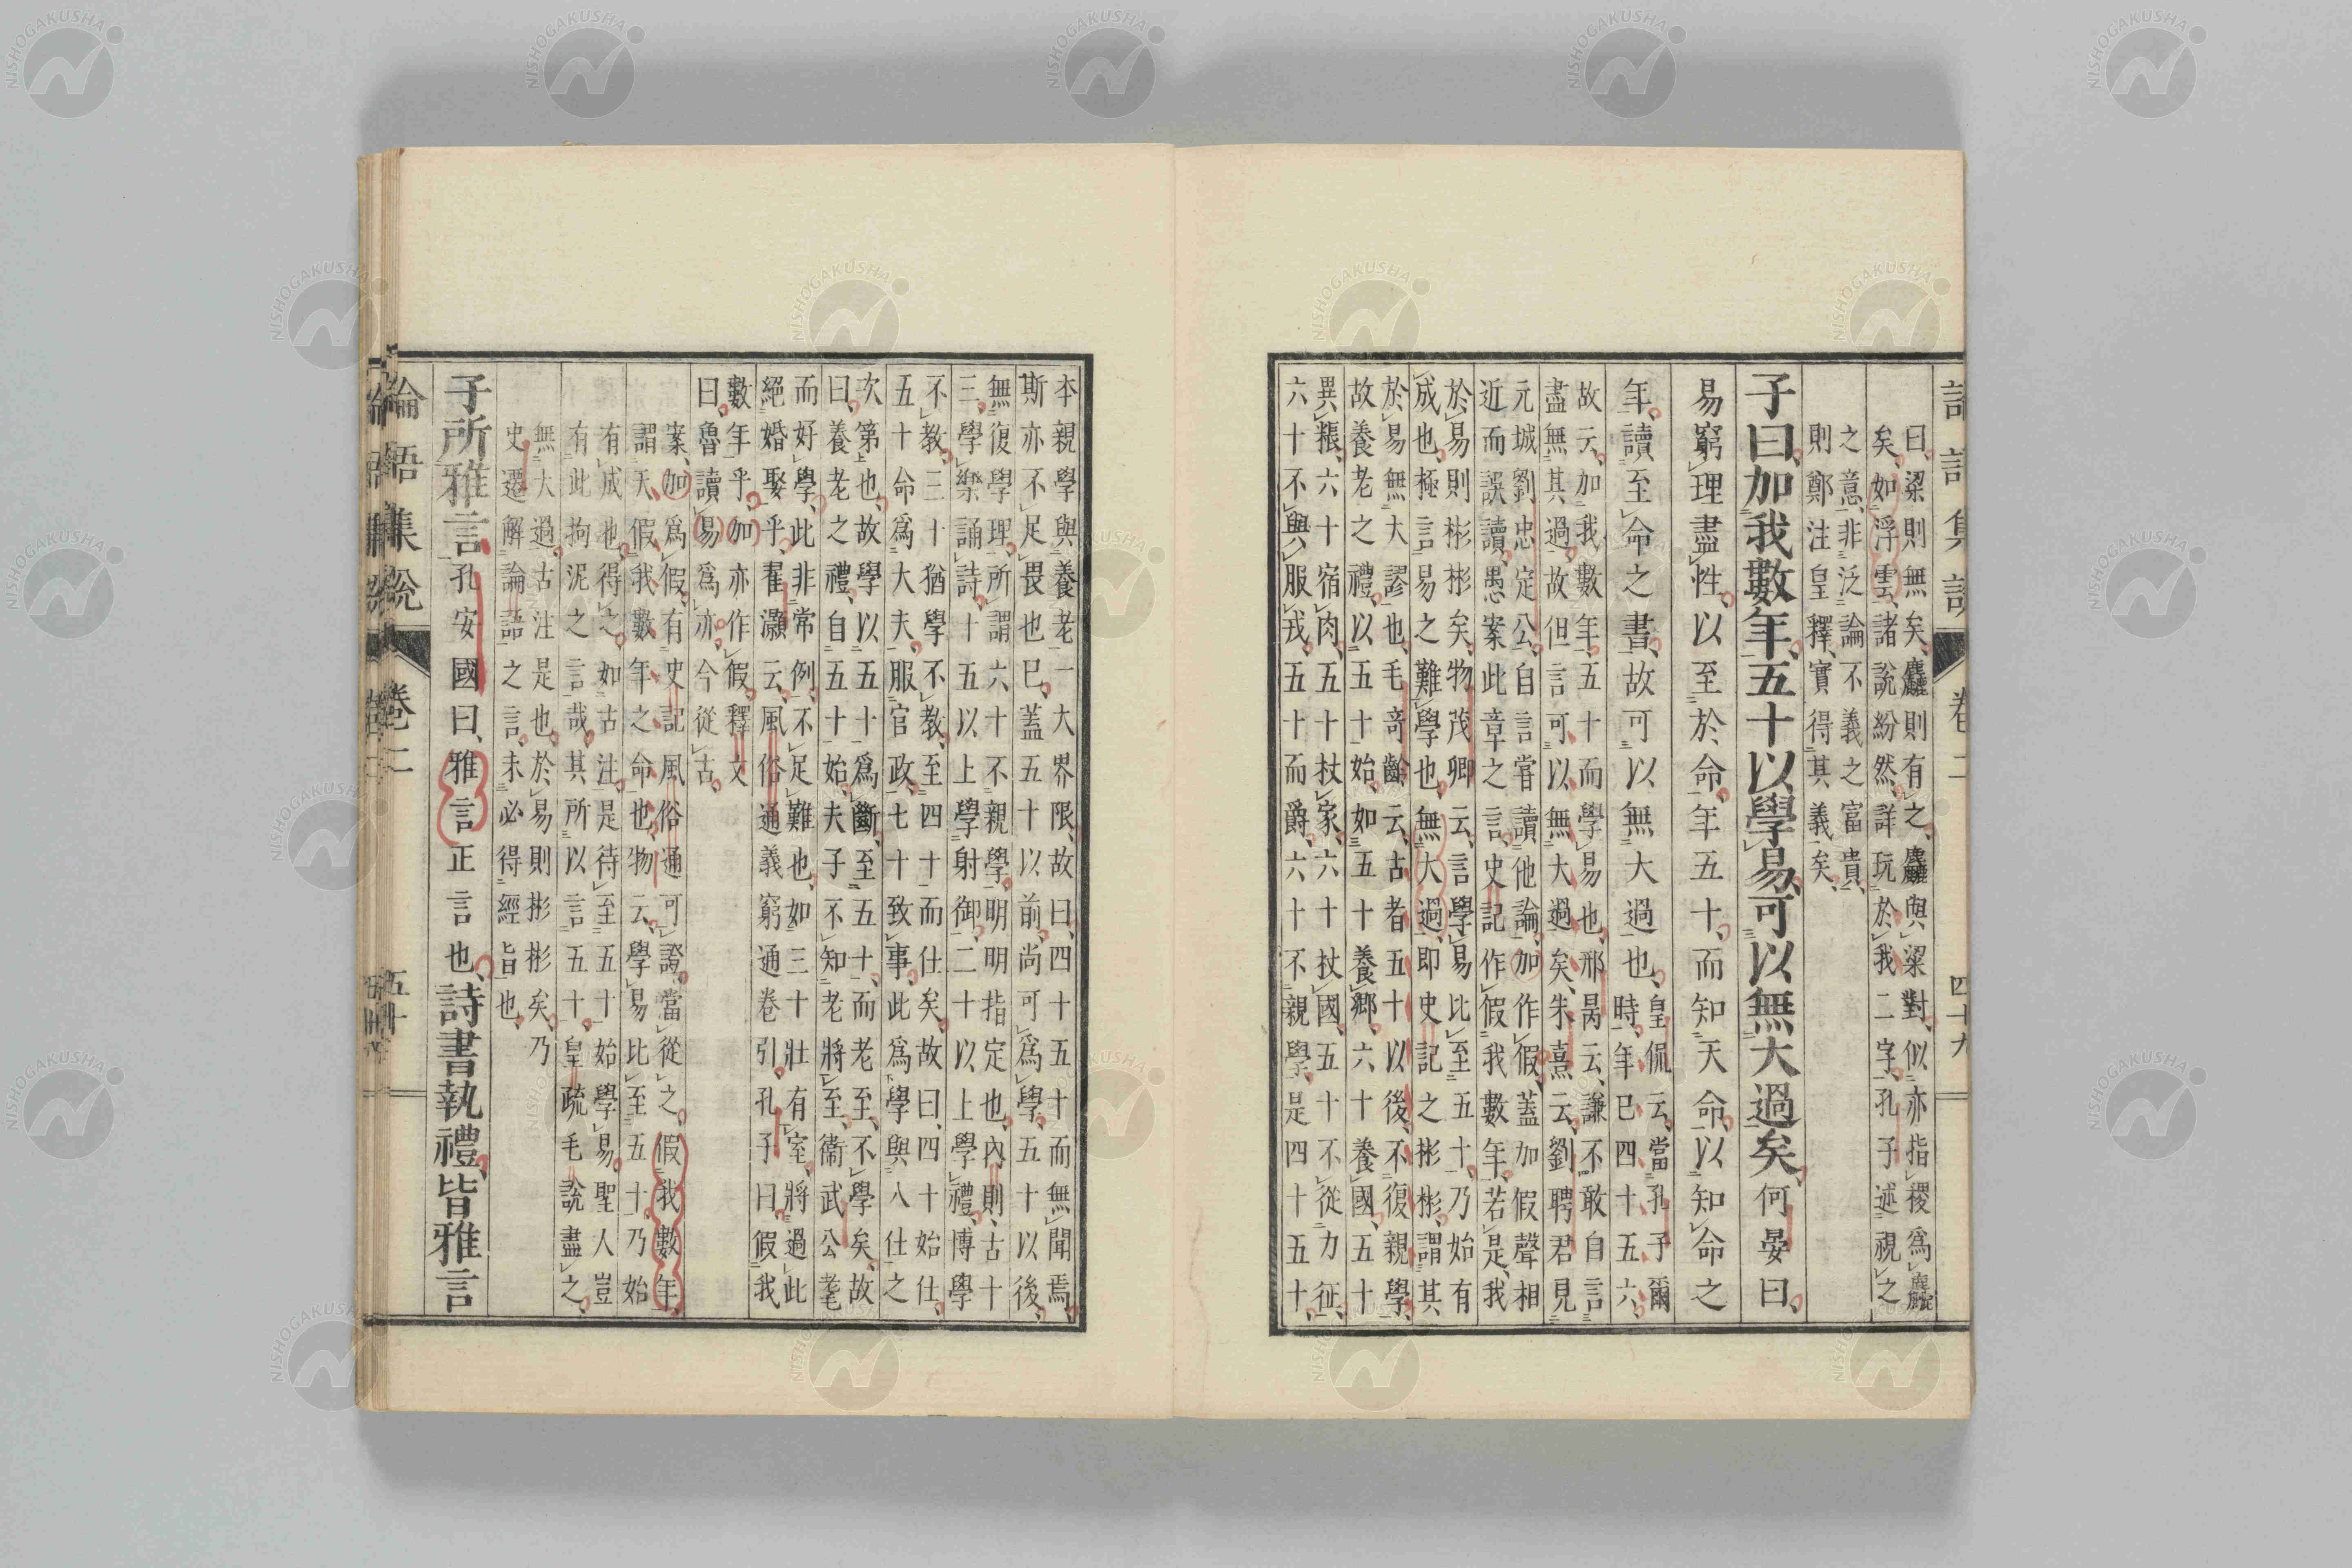 曰、粱則無矣、麤則有之、麤與粱對、似亦指稷爲麤
矣、如浮雲、諸說紛然、詳玩於我二字、孔子述視之
之意、非泛論不義之富貴、
則鄭注皇釋、實得其義矣、
子曰、加我數年、五十以學易、可以無大過矣、何晏曰、
易窮理盡性、以至於命、年五十、而知天命、以知命之
年、讀至命之書、故可以無大過也、
皇侃云、當孔子爾
時、年已四十五六、
故云、加我數年、五十而學易也、邢昺云、謙不敢自言
盡無其過、故但言可以無大過矣、朱熹云、劉聘君見
元城劉忠定公、自言嘗讀他論、加作假、蓋加假聲相
近而誤讀、愚案此章之言、史記作假我數年、若是、我
於易則彬彬矣、物茂卿云、言學易比至五十、乃始有
成也、極言易之難學也、無大過、即史記之彬彬、謂其
於易無大謬也、毛奇齡云、古者五十以後、不復親學、
故養老之禮、以五十始、如五十養鄉、六十養國、五十
異粻、六十宿肉、五十杖家、六十杖國、五十不從力征、
六十不與服戎、五十而爵、六十不親學、是四十五十、
本親學與養老一大界限、故曰、四十五十而無聞焉、
斯亦不足畏也已、蓋五十以前、尚可爲學、五十以後、
無復學理、所謂六十不親學、明明指定也、內則、古十
三、學樂誦詩、十五以上學射御、二十以上學禮、博學
不教、三十猶學不教、至四十而仕矣、故曰、四十始仕、
五十命爲大夫、服官政、七十致事、此爲學與入仕之
次第也、故學以五十爲斷、至五十、而老至、不學矣、故
曰、養老之禮、自五十始、夫子不知老將至、衞武公耄
而好學、此非常例、不足難也、如三十壯有室、將過此
絕婚娶乎、翟灝云、風俗通義窮通卷引、孔子曰、假我
數年乎、加亦作假、釋文
曰、魯讀易爲亦、今從古、
案、加爲假、有史記風俗通可證、當從之、假我數年、
謂天假我數年之命也、物云、學易比至五十、乃始
有成也、得之、如古注、是待至五十始學易、聖人豈
有此拘泥之言哉、其所以言五十、皇疏毛說盡之、
無大過、古注是也、於易則彬彬矣、乃
史遷解論語之言、未必得經旨也、
子所雅言、孔安國曰、雅言正言也、詩書執禮、皆雅言
論語集說
卷二
四十九
論語集說
卷二
五十
NISHOGAKUSHA